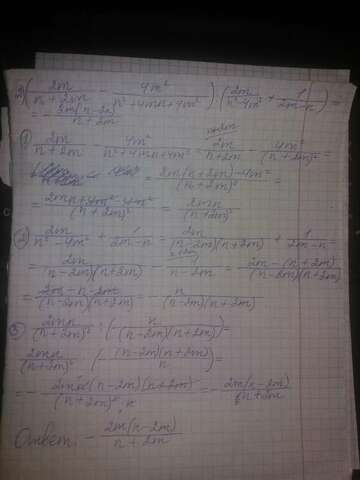 2) (2m/(n+2m) - 4m²/(n²+4mn+4m²)) : (2m/(n²-4m²) + 1/(2m-n)) =
= - 2m(n-2m)/(n+2m)
1) 2m/(n+2m) - 4m²/(n²+4mn+4m²) = 2m/(n+2m) - 4m²/(n+2m)² =
= (2m(n+2m)-4m²)/(n+2m)² =
= (2mn+4m²-4m²)/(n+2m)² = 2mn/(n+2m)²
2) 2m/(n²-4m²) + 1/(2m-n) = 2m/((n-2m)(n+2m)) + 1/(2m-n) =
= 2m/((n-2m)(n+2m)) - 1/(n-2m) = (2m-(n+2m))/((n-2m)(n+2m)) =
= (2m-n-2m)/((n-2m)(n+2m)) = - n/((n-2m)(n+2m))
3) 2mn/(n+2m)² : (- n/((n-2m)(n+2m))) =
2mn/(n+2m)² · (- (n-2m)(n+2m)/n) =
= - 2mn(n-2m)(n+2m)/((n+2m)²·n) = - 2m(n-2m)/(n+2m)
Ответ: - 2m(n-2m)/(n+2m)